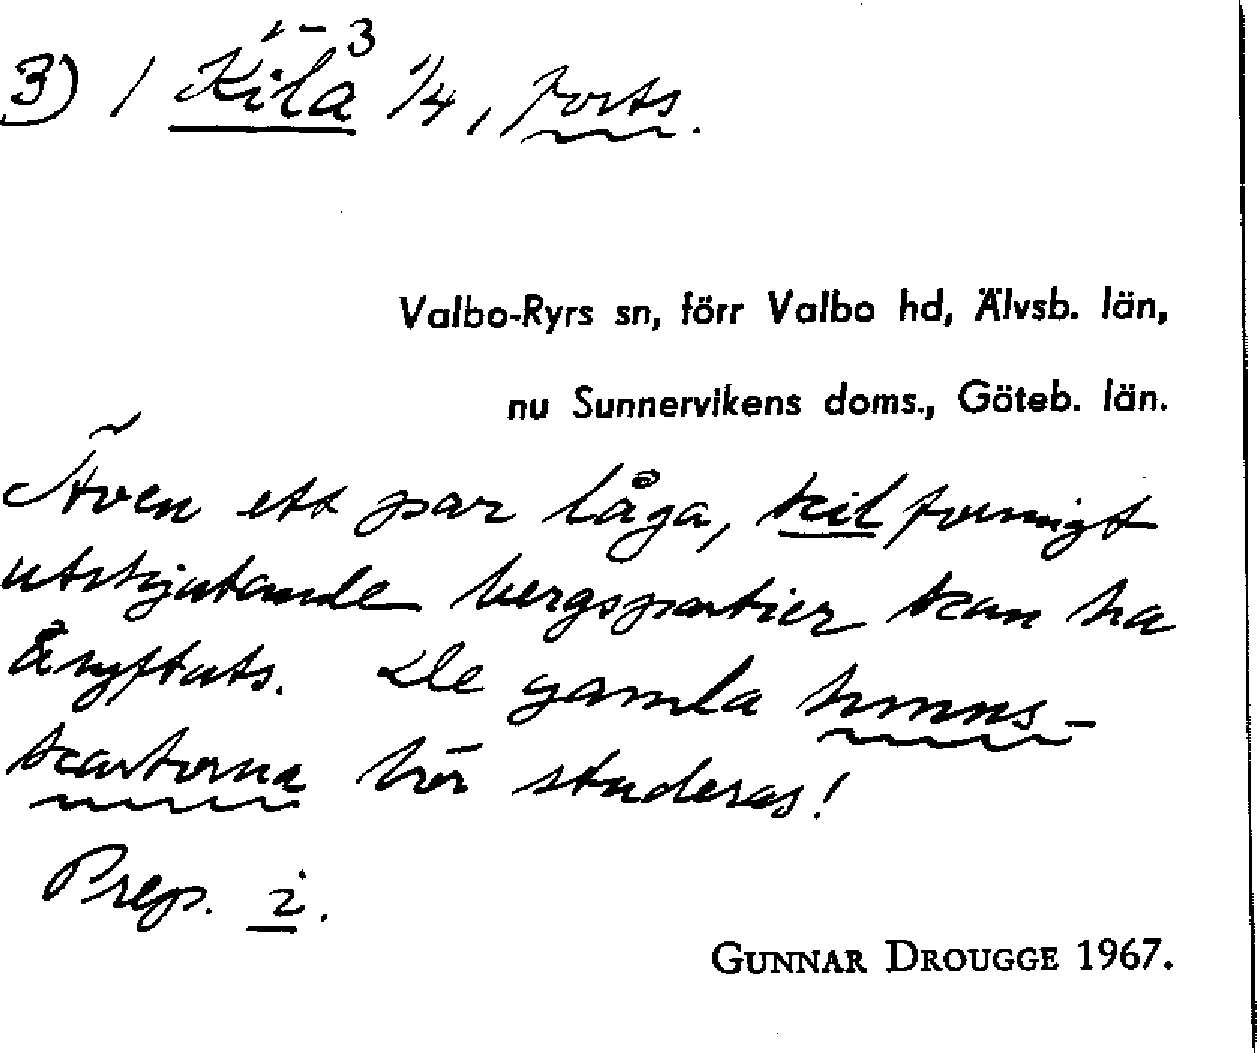 1-3
3) / Kila 1/4, forts.
Valbo-Ryrs sn, förr Valbo hd, Älvsb. län,
nu Sunnervikens doms., Göteb. län.
Även ett par låga, kilformigt
utskjutande bergspartier kan ha
åsyftats. De gamla hmns-
kartorna bör studeras!
Prep. i.
GUNNAR DROUGGE 1967.